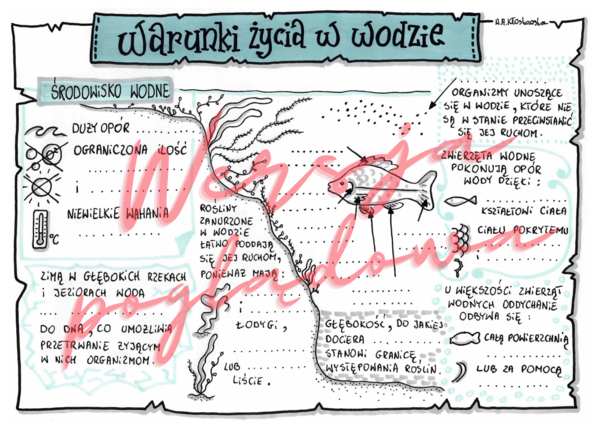 Warunki życia w wodzie
A.A.Kłosowska
ŚRODOWISKO WODNE
DUŻY OPÓR ........
OGRANICZONA ILOŚĆ
........
i ........
NIEWIELKIE WAHANIA
........
°C
ZIMĄ W GŁĘBOKICH RZEKACH
I JEZIORACH WODA ........
........
DO DNA, CO UMOŻLIWIA
PRZETRWANIE ŻYJĄCYM
W NICH ORGANIZMOM.
ROŚLINY
ZANURZONE
W WODZIE
ŁATWO PODDAJĄ
SIĘ JEJ RUCHOM,
PONIEWAŻ MAJĄ:
........
i ........
ŁODYGI,
........
LUB ........
LIŚCIE.
GŁĘBOKOŚĆ, DO JAKIEJ
DOCIERA ........
STANOWI GRANICĘ
WYSTĘPOWANIA ROŚLIN.
........
ORGANIZMY UNOSZĄCE
SIĘ W WODZIE, KTÓRE NIE
SĄ W STANIE PRZECIWSTAWIĆ
SIĘ JEJ RUCHOM.
ZWIERZĘTA WODNE
POKONUJĄ OPÓR
WODY DZIĘKI:
........
KSZTAŁTOWI CIAŁA
CIAŁU POKRYTEMU
........
i ........
U WIĘKSZOŚCI ZWIERZĄT
WODNYCH ODDYCHANIE
ODBYWA SIĘ:
CAŁĄ POWIERZCHNIĄ
........
LUB ZA POMOCĄ
........
Wersja
poglądowa